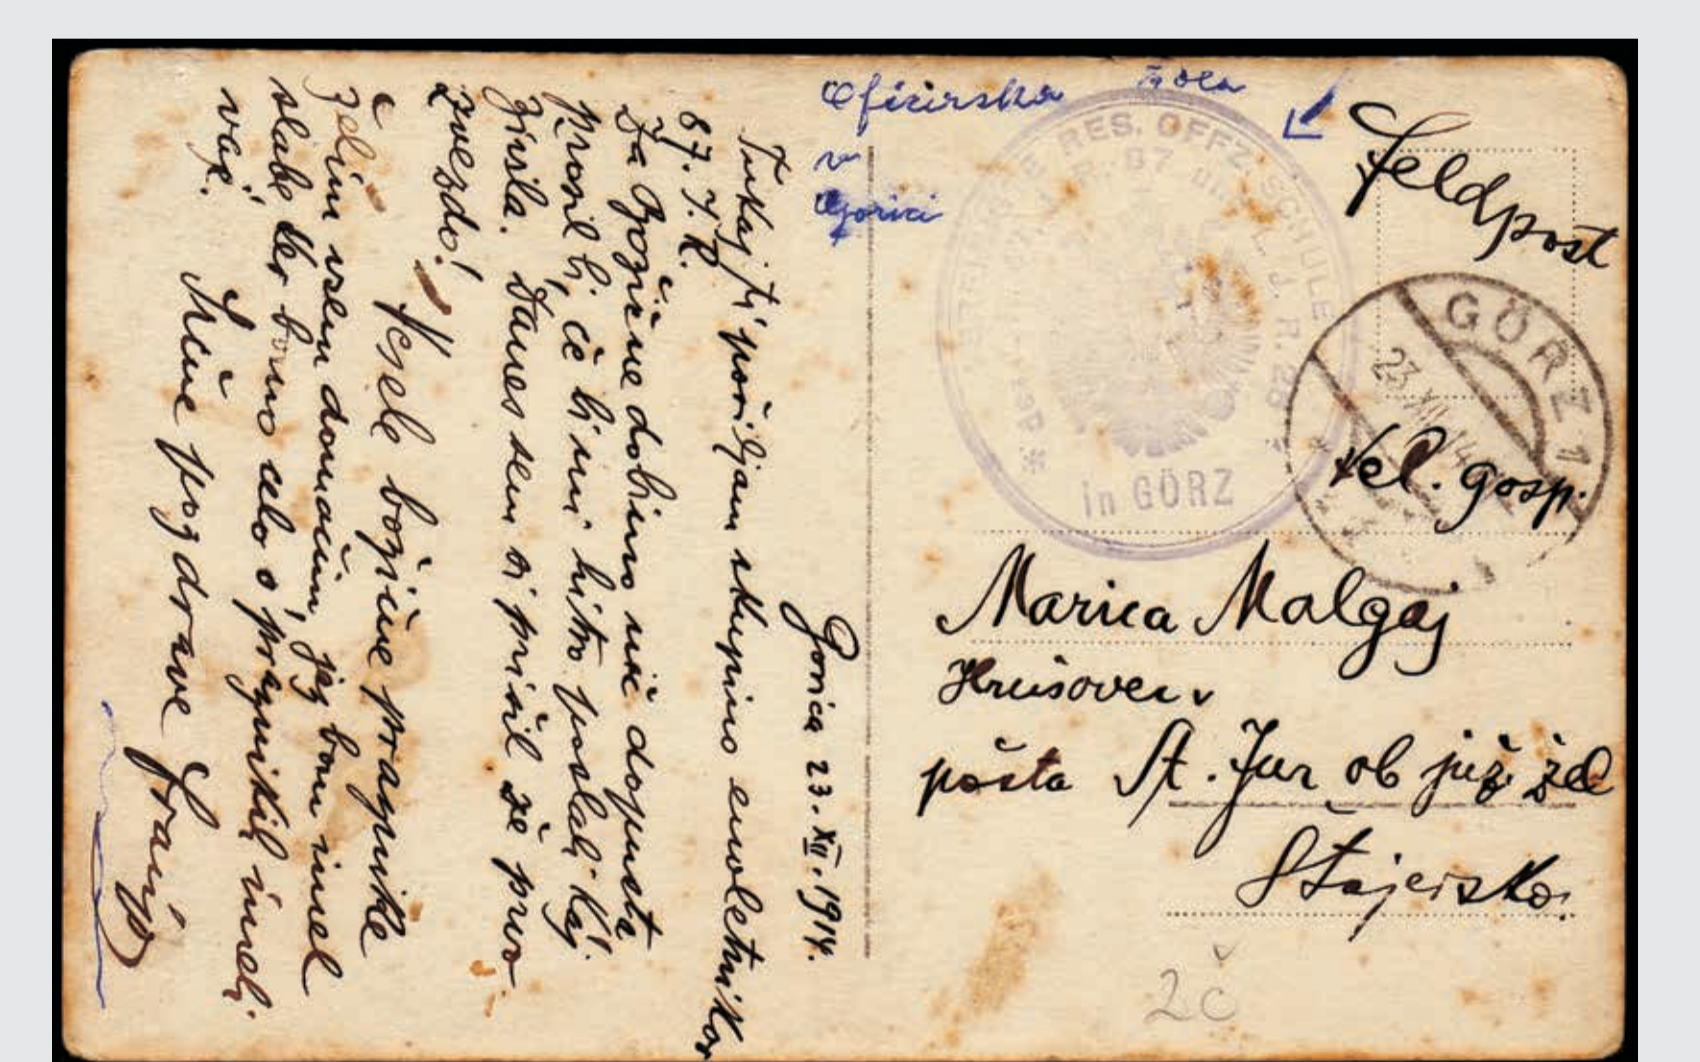 Oficirska šola
v
Gorici
Feldpost
RES. OFFZ. SCHULE
J. R. 87 und
J. R. 28
der
in GÖRZ
GÖRZ 1
23 XII 14
Vel. gosp.
Marica Malgaj
Hruševec
pošta St. Jur ob juž. žel
Štajersko.
Gorica 23. XII. 1914.
Tukaj ti pošiljam skupino enoletnikov
87. J. R.
Za Božične dobimo nič dopusta
prosil bi, če bi mi hitro poslali kaj
žinsla. Danes sem si prišil že prvo
zvezdo!
Vesele božične praznike
želim vsem domačim, jaz bom imel
slabe ker bomo celo o praznikih imeli
vaje.
Srčne pozdrave Franjo
2č